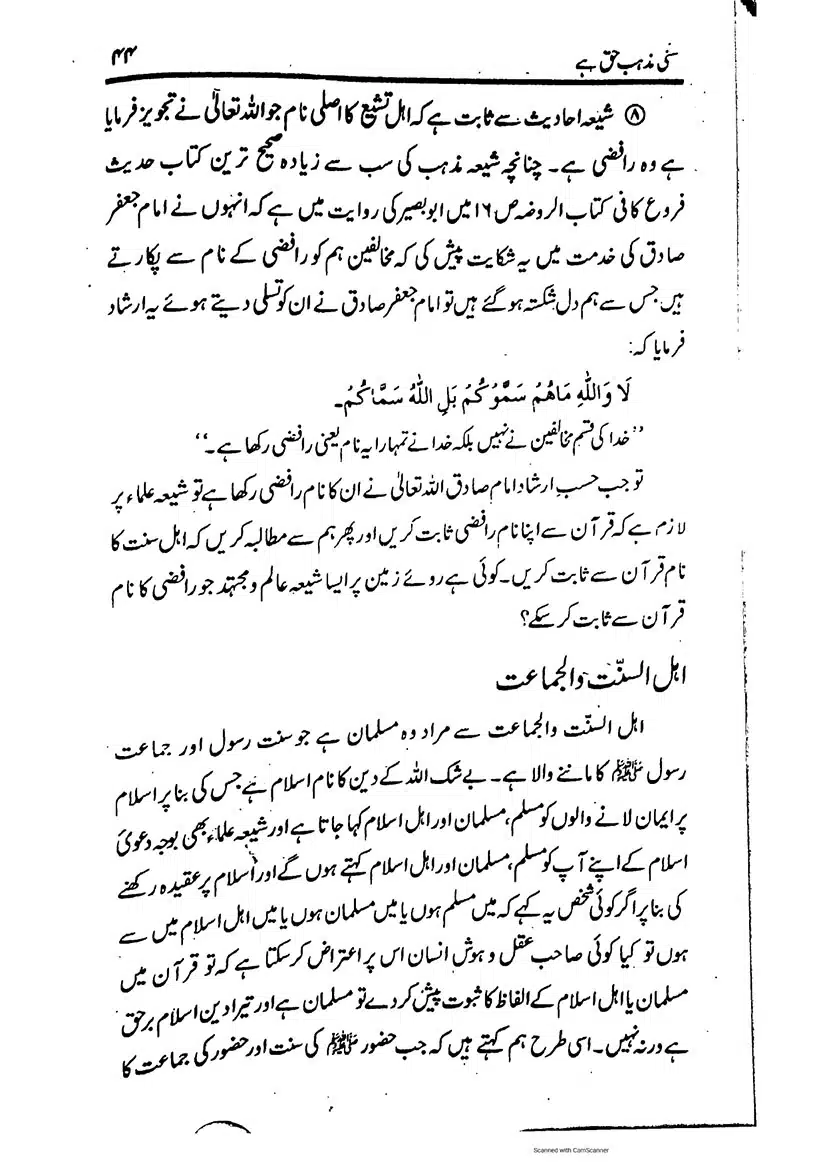 سُنی مذہب حق ہے
۴۴
⑧ شیعہ احادیث سے ثابت ہے کہ اہل تشیع کا اصلی نام جو اللہ تعالیٰ نے تجویز فرمایا
ہے وہ رافضی ہے۔ چنانچہ شیعہ مذہب کی سب سے زیادہ صحیح ترین کتاب حدیث
فروع کافی کتاب الروضہ ص ۱۶ میں ابو بصیر کی روایت میں ہے کہ انہوں نے امام جعفر
صادق کی خدمت میں یہ شکایت پیش کی کہ مخالفین ہم کو رافضی کے نام سے پکارتے
ہیں جس سے ہم دل شکستہ ہو گئے ہیں تو امام جعفر صادق نے ان کو تسلی دیتے ہوئے یہ ارشاد
فرمایا کہ:
لَا وَاللّٰهِ مَاهُمْ سَمُّوْكُمْ بَلِ اللّٰهُ سَمَّاكُمْ۔
’’خدا کی قسم مخالفین نے نہیں بلکہ خدا نے تمہارا یہ نام یعنی رافضی رکھا ہے۔‘‘
تو جب حسبِ ارشاد امام صادق اللہ تعالیٰ نے ان کا نام رافضی رکھا ہے تو شیعہ علماء پر
لازم ہے کہ قرآن سے اپنا نام رافضی ثابت کریں اور پھر ہم سے مطالبہ کریں کہ اہل سنت کا
نام قرآن سے ثابت کریں۔ کوئی ہے روئے زمین پر ایسا شیعہ عالم و مجتہد جو رافضی کا نام
قرآن سے ثابت کر سکے؟
اہل السنّت والجماعت
اہل السنّت والجماعت سے مراد وہ مسلمان ہے جو سنت رسول اور جماعت
رسول ﷺ کا ماننے والا ہے۔ بے شک اللہ کے دین کا نام اسلام ہے جس کی بنا پر اسلام
پر ایمان لانے والوں کو مسلم، مسلمان اور اہل اسلام کہا جاتا ہے اور شیعہ علماء بھی بوجہ دعویٰ
اسلام کے اپنے آپ کو مسلم، مسلمان اور اہل اسلام کہتے ہوں گے اور اسلام پر عقیدہ رکھنے
کی بنا پر اگر کوئی شخص یہ کہے کہ میں مسلم ہوں یا میں مسلمان ہوں یا میں اہل اسلام میں سے
ہوں تو کیا کوئی صاحب عقل و ہوش انسان اس پر اعتراض کر سکتا ہے کہ تو قرآن میں
مسلمان یا اہل اسلام کے الفاظ کا ثبوت پیش کر دے تو مسلمان ہے اور تیرا دین اسلام برحق
ہے ورنہ نہیں۔ اسی طرح ہم کہتے ہیں کہ جب حضور ﷺ کی سنت اور حضور کی جماعت کا
Scanned with CamScanner